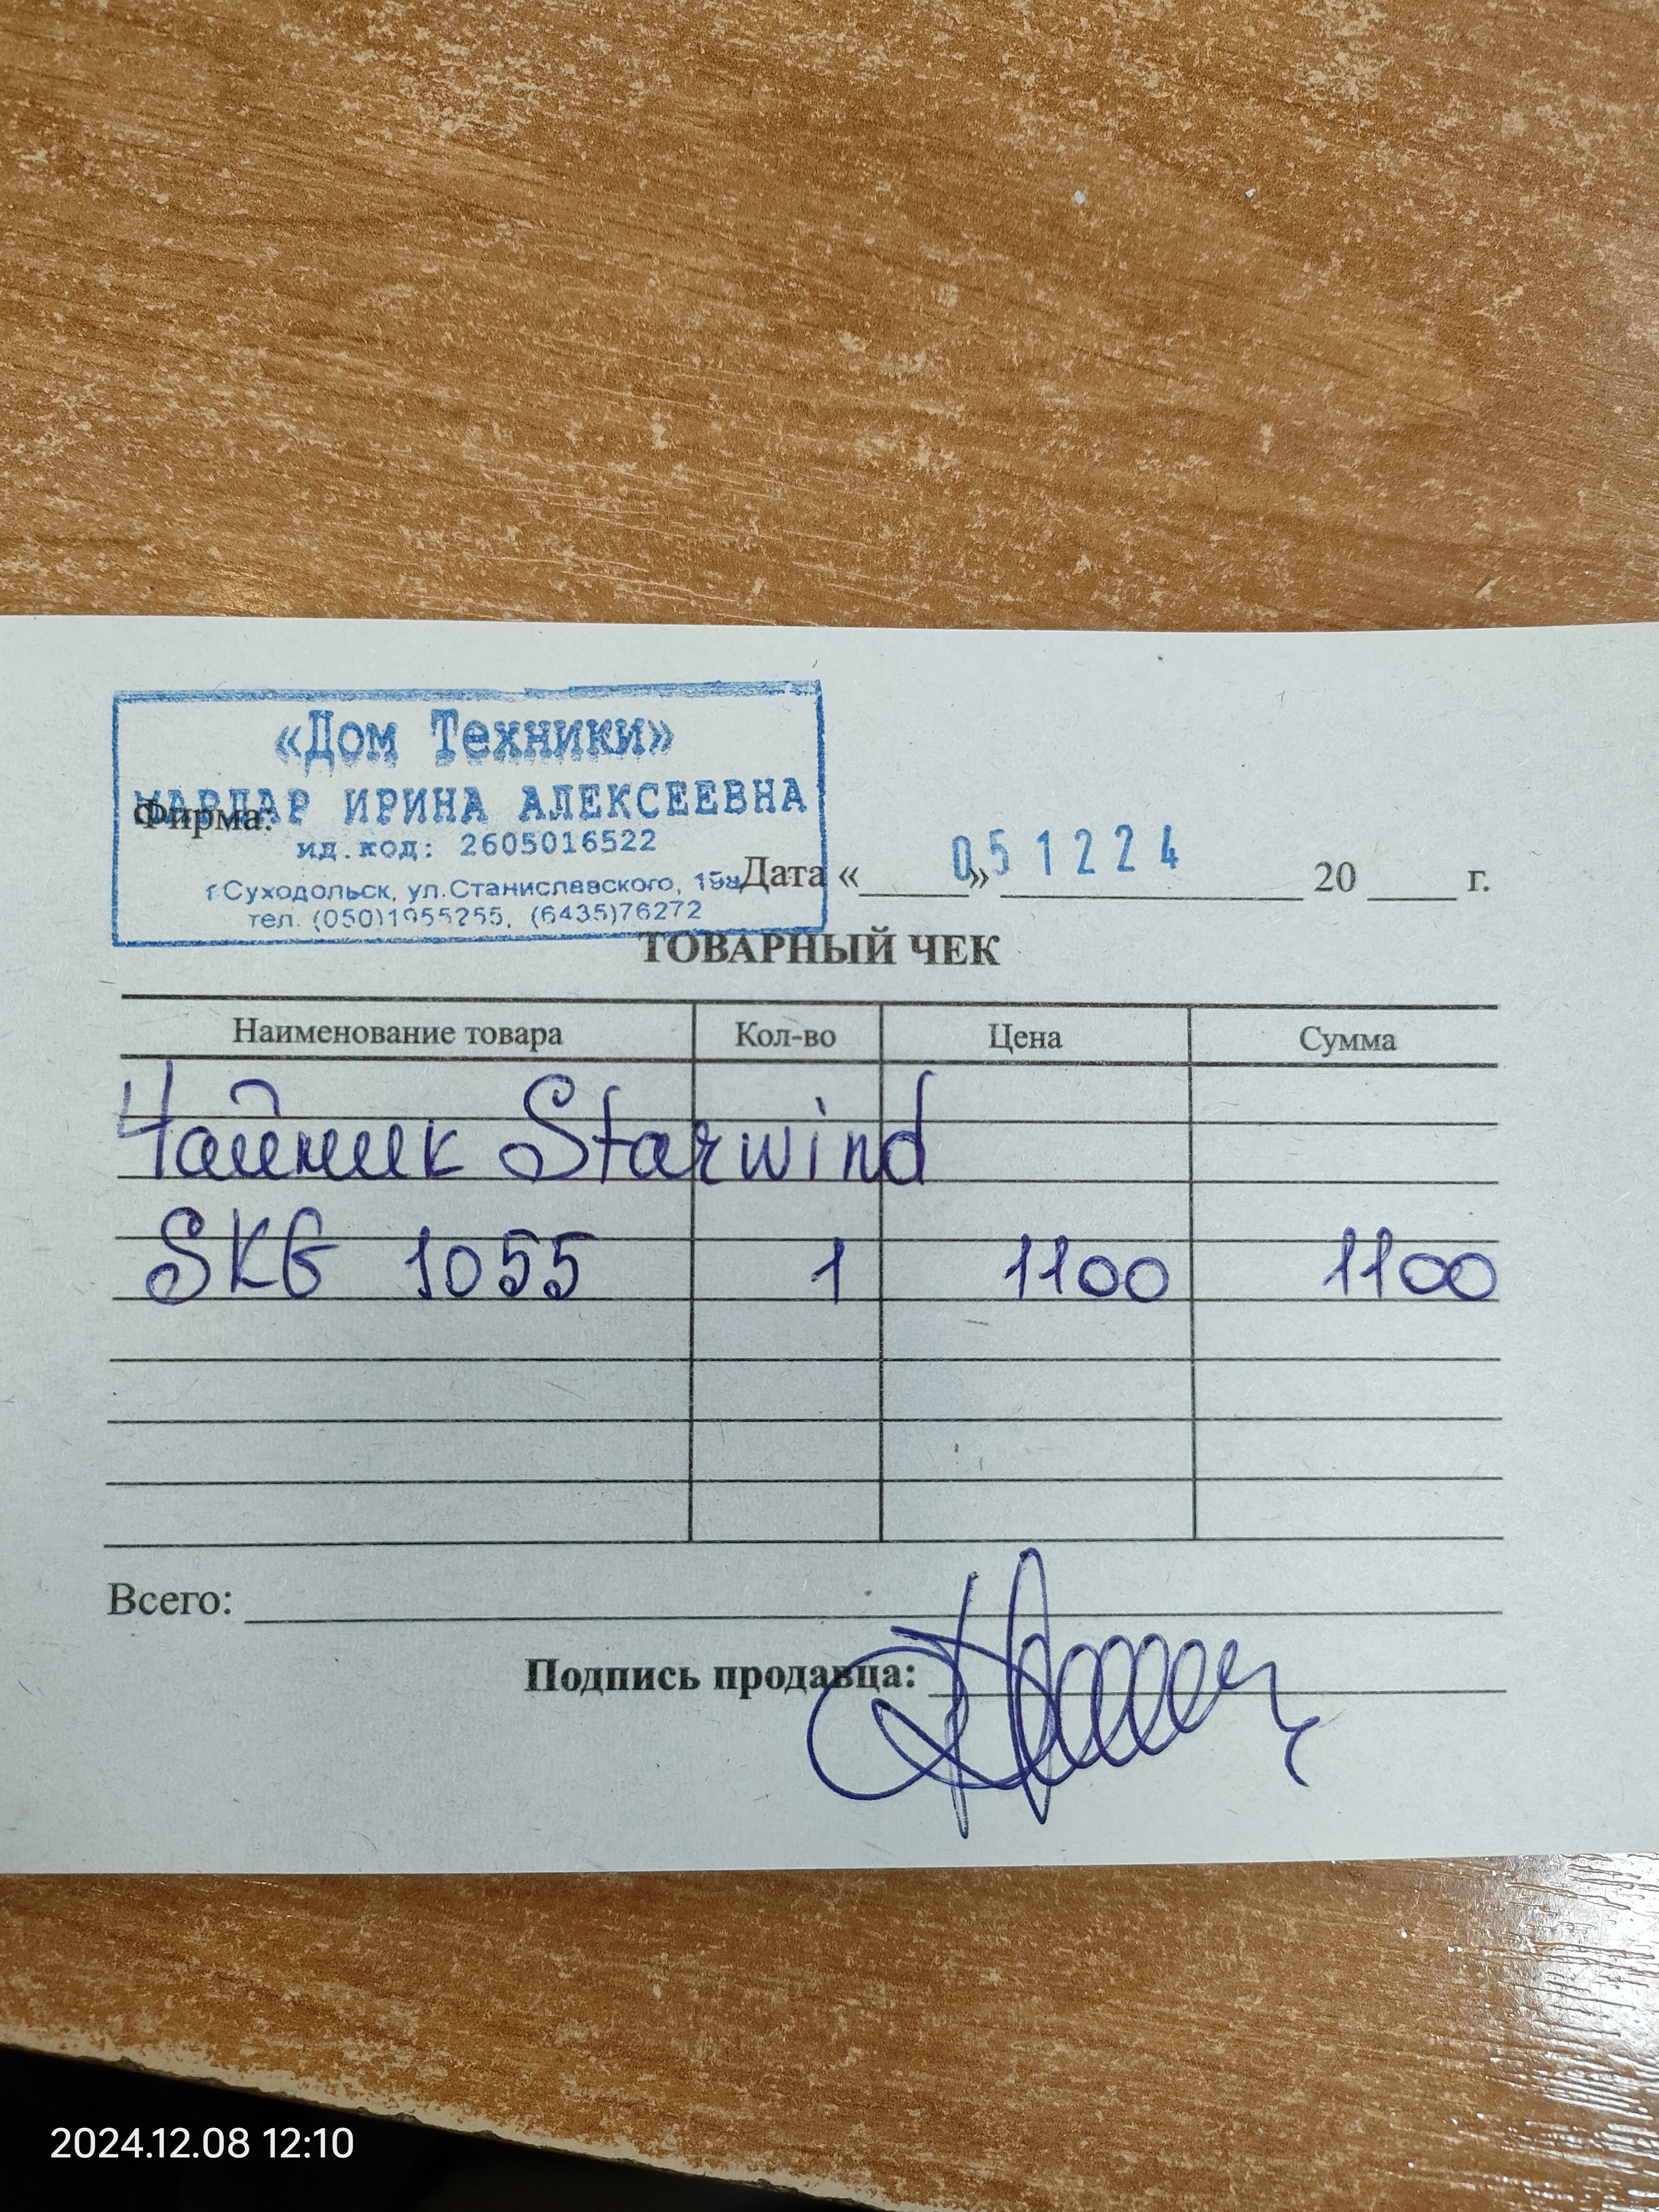 «Дом Техники»
Фирма:
ИРИНА АЛЕКСЕЕВНА
ид.код: 2605016522
г.Суходольск, ул.Станиславского,
тел. (050)1955255, (6435)76272
Дата «____» 051224 20 ____ г.
ТОВАРНЫЙ ЧЕК
Наименование товара Кол-во Цена Сумма
Чайник Starwind
SKG 1055 1 1100 1100
Всего:
Подпись продавца:
2024.12.08 12:10